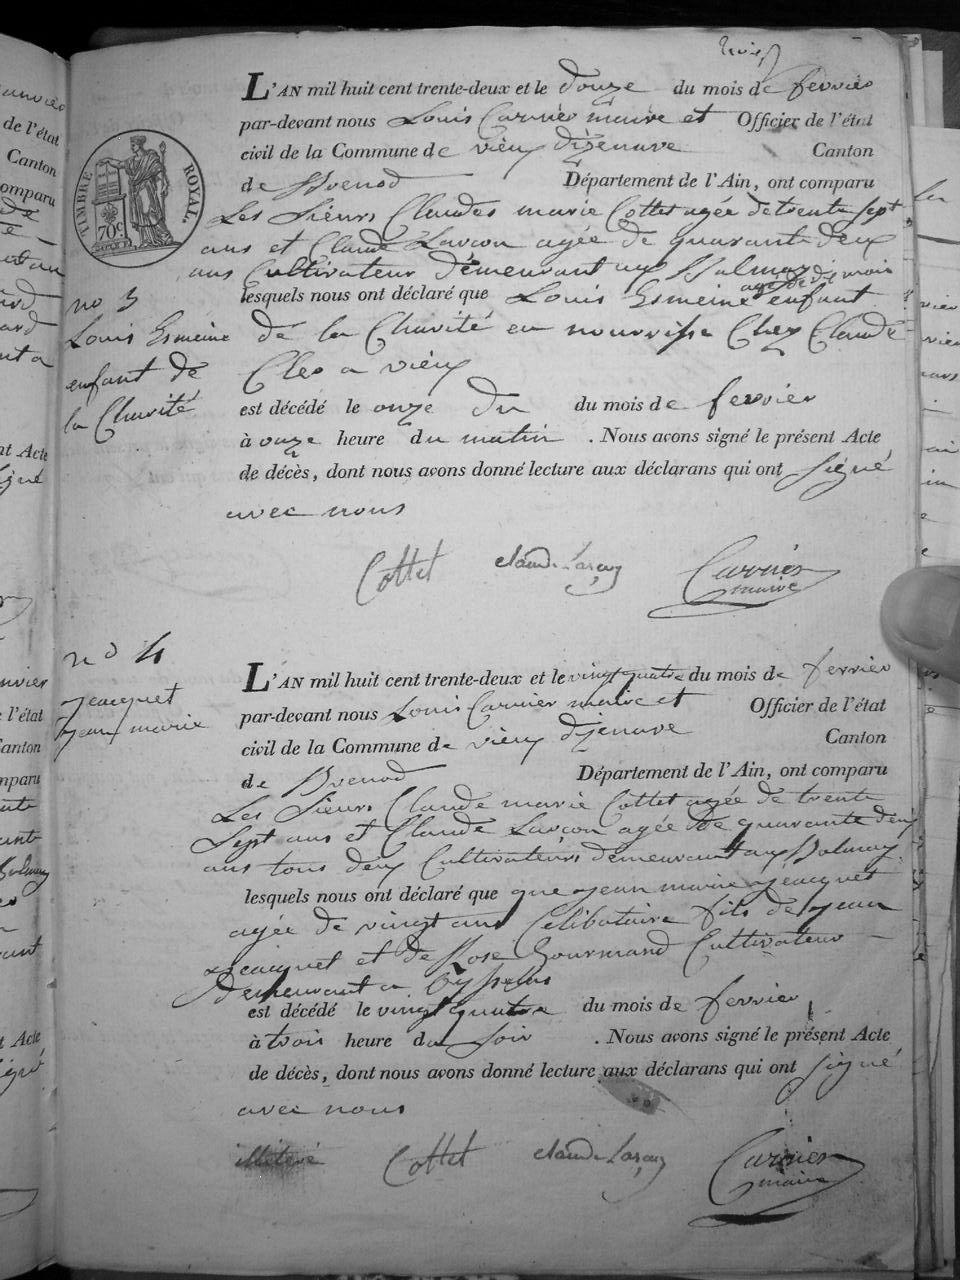 L'AN mil huit cent trente-deux et le douze du mois de fevrier
par-devant nous Louis Carrier maire et Officier de l'état
civil de la Commune de vieux dizenave Canton
de Brenod Département de l'Ain, ont comparu
Les Sieurs Claudes marie Cottet agée de trente sept
ans et Claude Larçon agée de quarante deux
ans Cultivateur demeurant aux Balmay
TIMBRE ROYAL.
70c
no 3
Louis Esmeine
enfant de
la Charité
agée de dix mois
lesquels nous ont déclaré que Louis Esmeine enfant
de la Charité en nourrisse Chez Claude
Cleo a vieux
est décédé le onze du du mois de fevrier
à onze heure du matin . Nous avons signé le présent Acte
de décès, dont nous avons donné lecture aux déclarans qui ont signé
avec nous
Cottet claude Larçon Carrier
maire
no 4
jeacquet
jean marie
L'AN mil huit cent trente-deux et le vingt quatre du mois de fevrier
par-devant nous Louis Carrier maire et Officier de l'état
civil de la Commune de vieux dizenave Canton
de Brenod Département de l'Ain, ont comparu
Les Sieurs Claude marie Cottet agée de trente
Sept ans et Claude Larçon agée de quarante deux
ans tous deux Cultivateurs demeurant aux Balmay
lesquels nous ont déclaré que que jean marie jeacquet
agée de vingt ans Célibataire fils de jean
jeacquet et de Rose Gourmand Cultivateur
demeurant a
est décédé le vingt quatre du mois de fevrier
à trois heure du soir . Nous avons signé le présent Acte
de décès, dont nous avons donné lecture aux déclarans qui ont signé
avec nous
Cottet claude Larçon Carrier
maire